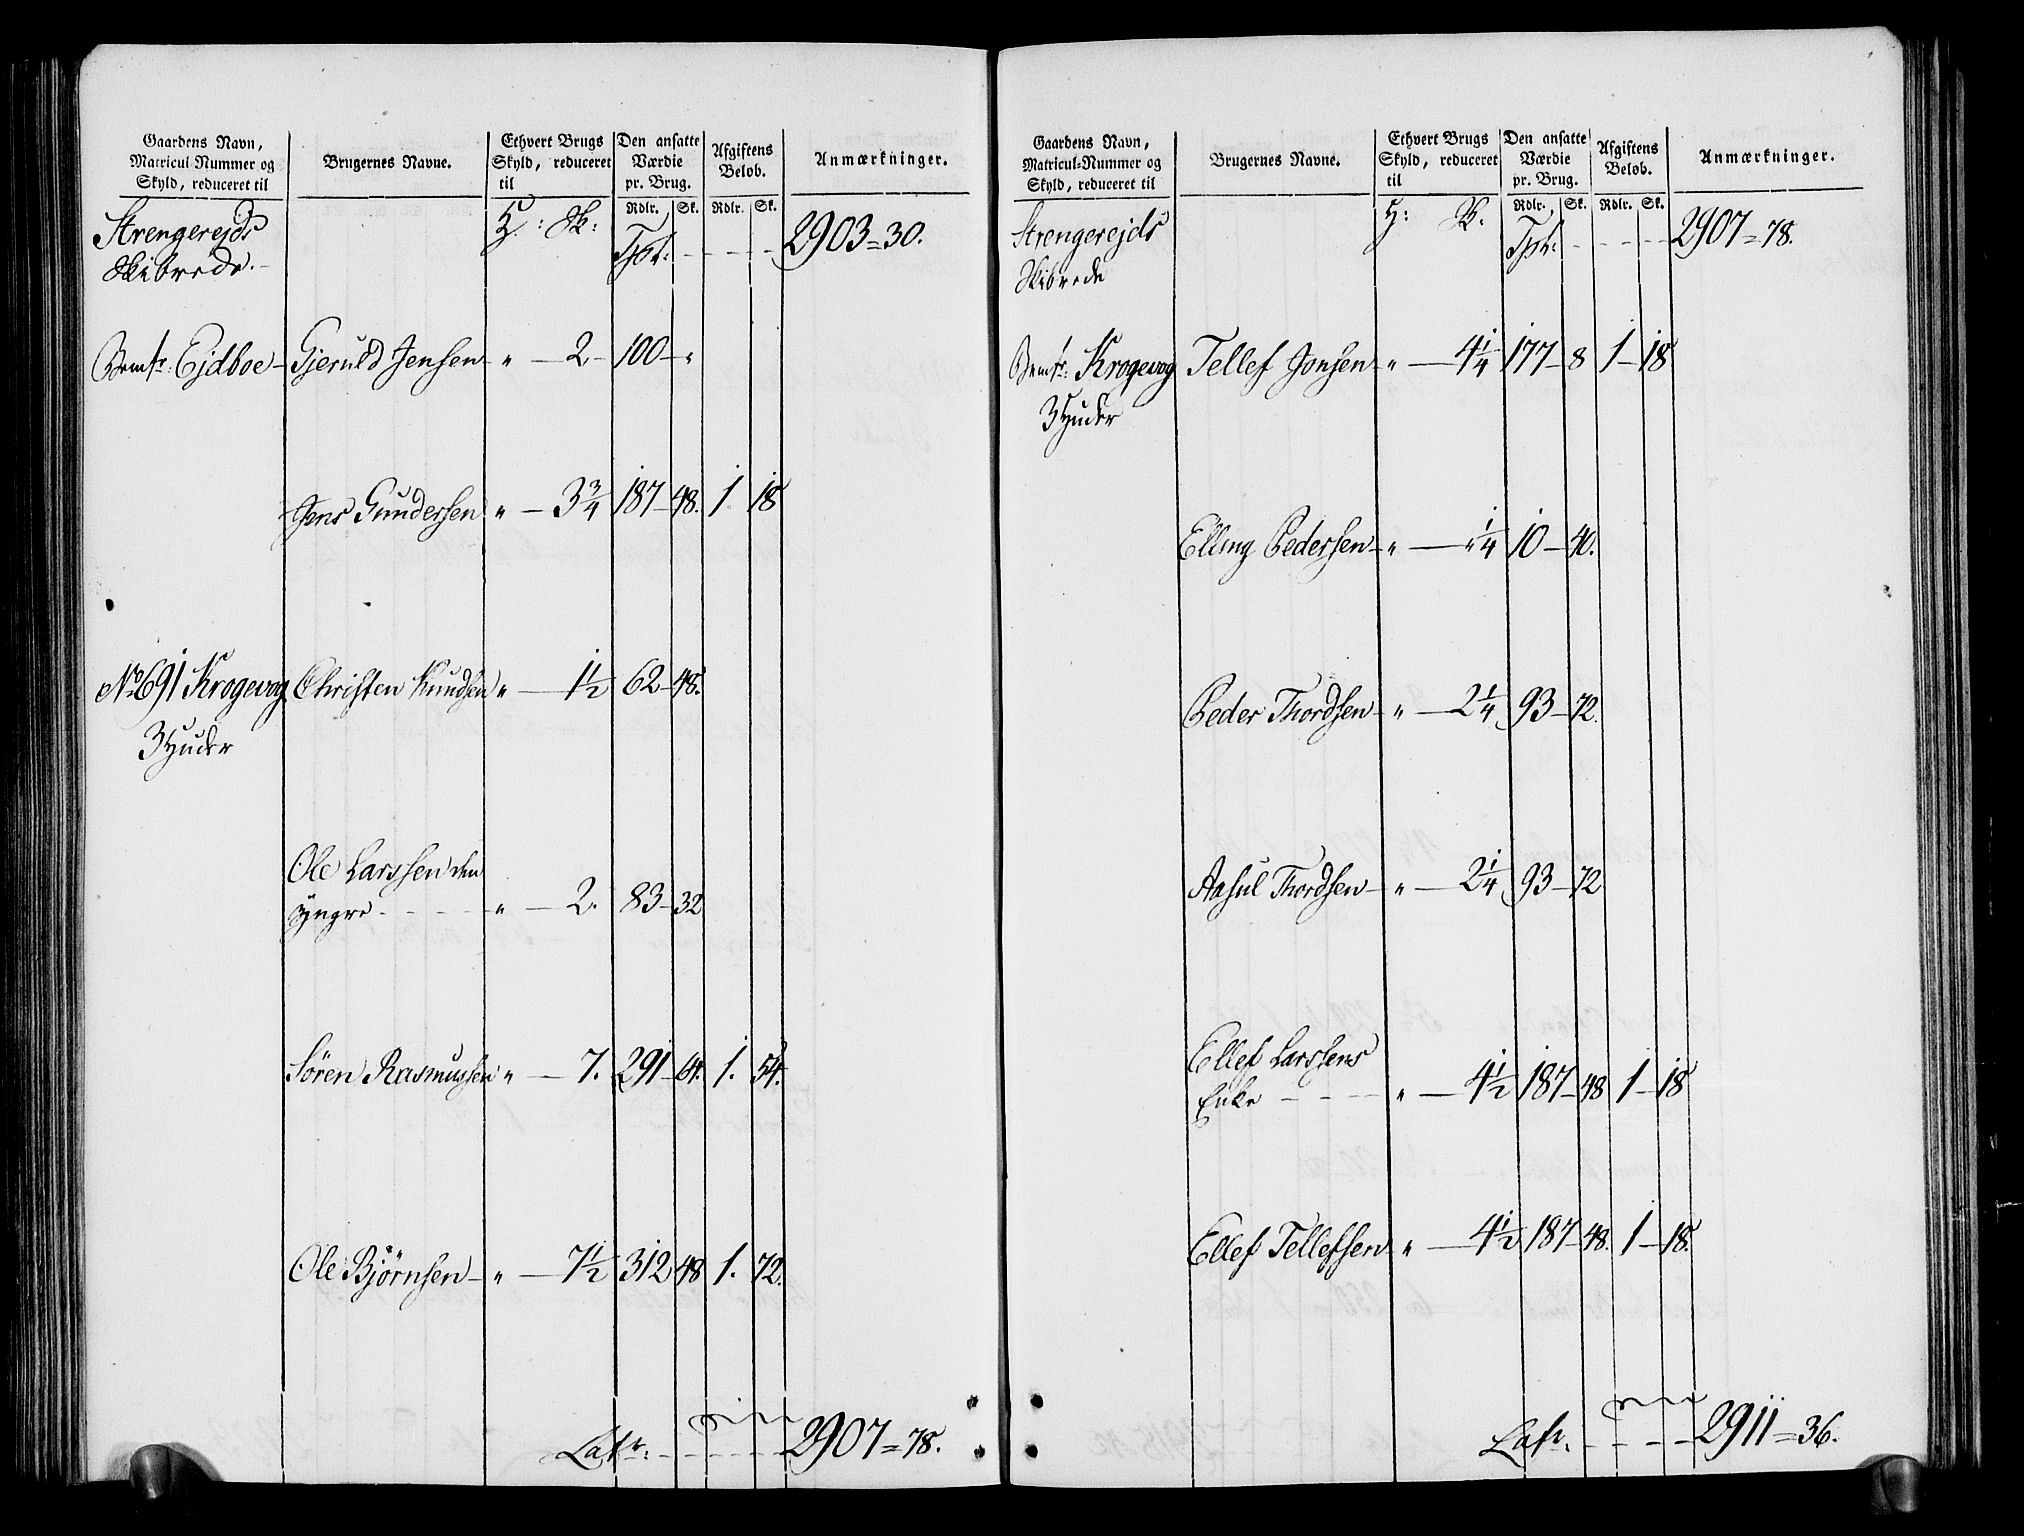 Gaardens Navn,
Matricul-Nummer og
Skyld, reduceret til
Brugernes Navne.
Ethvert Brugs
Skyld, reduceret
til
Den ansatte
Værdie
pr. Brug.
Afgiftens
Beløb.
Anmærkninger.
Rdlr. Sk. Rdlr. Sk.
Strengerejds
Skibrede.
H: Sk: Tpt: 2903=30.
Bemte: Ejdboe Gjeruld Jensen " 2 100 "
Jens Gundersen " 3 3/4 187 48. 1 18
No 691 Krogevog Christen Knudsen " 1 1/2 62 48.
3 Huder
Ole Larssen den
yngre " 2. 83 32
Sören Rasmussen " 7. 291 64. 1. 54.
Ole Bjørnsen " 7 1/2 312 48 1. 72.
Latr: 2907=78.
Gaardens Navn,
Matricul-Nummer og
Skyld, reduceret til
Brugernes Navne.
Ethvert Brugs
Skyld, reduceret
til
Den ansatte
Værdie
pr. Brug.
Afgiftens
Beløb.
Anmærkninger.
Rdlr. Sk. Rdlr. Sk.
Strengerejds
Skibrede
H: Sk. Tpt: 2907=78.
Bemte: Krogevog Tellef Jonsen " 4 1/4 177 8 1 18
3 Huder
Elling Pedersen " " 1/4 10 40.
Peder Thordsen " 2 1/4 93 72.
Aasul Thordsen " 2 1/4 93 72
Ellef Larssens
Enke " 4 1/2 187 48 1 18
Ellef Tellefsen " 4 1/2 187 48. 1 18.
Latr. 2911=36.